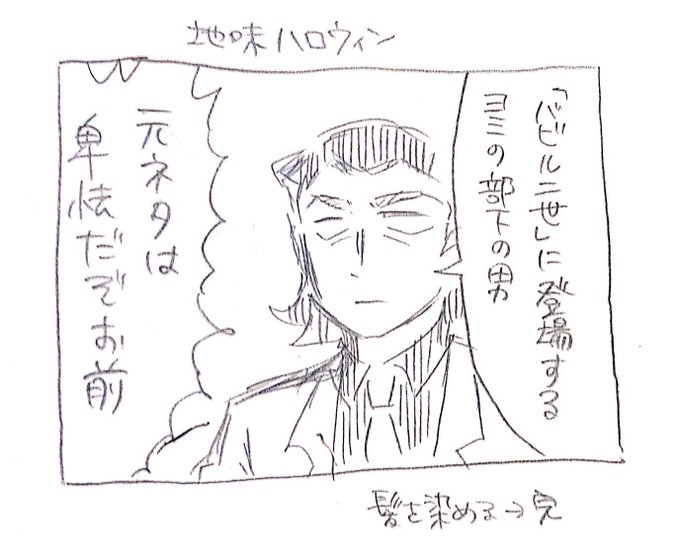 地味ハロウィン
「バビル二世」に登場する
ヨミの部下の男
元ネタは
卑怯だぞお前
髪を染める→完